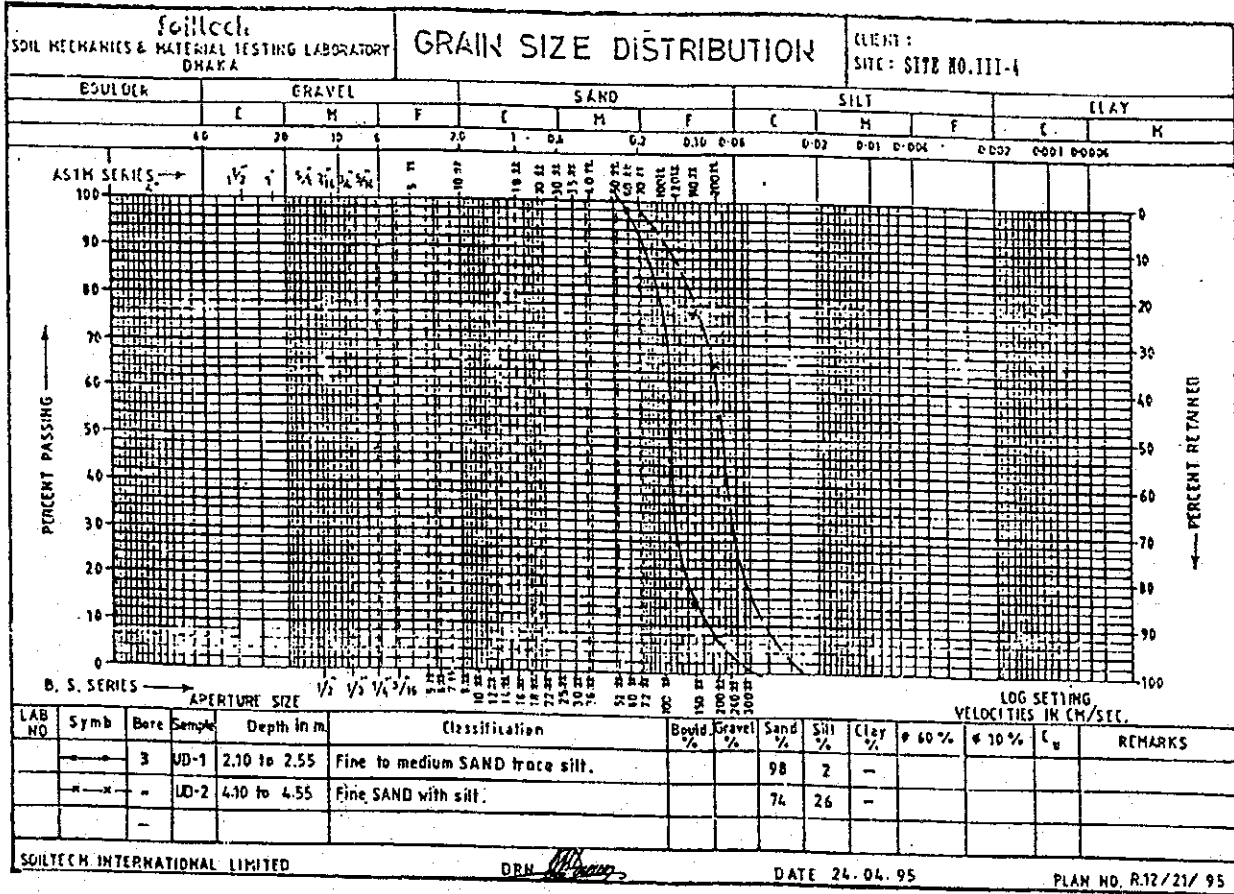 Soiltech
SOIL MECHANICS & MATERIAL TESTING LABORATORY
DHAKA
GRAIN SIZE DISTRIBUTION
CLIENT :
SITE : SITE NO.III-4
BOULDER GRAVEL SAND SILT CLAY
C M F C M F C M F C M
60 20 10 6 2.0 1 0.6 0.2 0.10 0.06 0.02 0.01 0.006 0.002 0.001 0.0006
ASTM SERIES
100
90
80
70
60
50
40
30
20
10
0
PERCENT PASSING
0
10
20
30
40
50
60
70
80
90
100
PERCENT RETAINED
B. S. SERIES
APERTURE SIZE
LOG SETTING
VELOCITIES IN CM/SEC.
LAB NO Symb Bore Sample Depth in m. Classification Bould. % Gravel % Sand % Silt % Clay % ϕ 60 % ϕ 10 % Cu REMARKS
3 UD-1 2.10 to 2.55 Fine to medium SAND trace silt. 98 2 -
" UD-2 4.10 to 4.55 Fine SAND with silt. 74 26 -
-
SOILTECH INTERNATIONAL LIMITED DRN DATE 24.04.95 PLAN NO. R.12/21/ 95